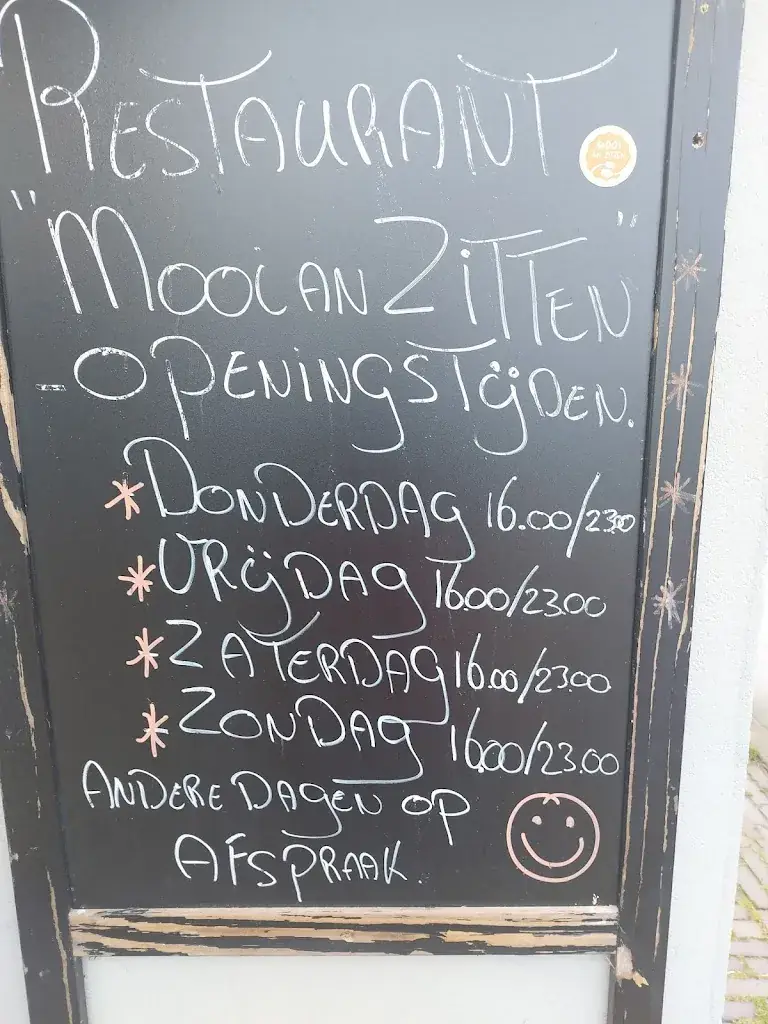 RESTAURANT
"MOOI AN ZITTEN"
-OPENINGSTIJDEN.
* DONDERDAG 16.00/23.00
* VRIJDAG 16.00/23.00
* ZATERDAG 16.00/23.00
* ZONDAG 16.00/23.00
ANDERE DAGEN OP
AFSPRAAK.